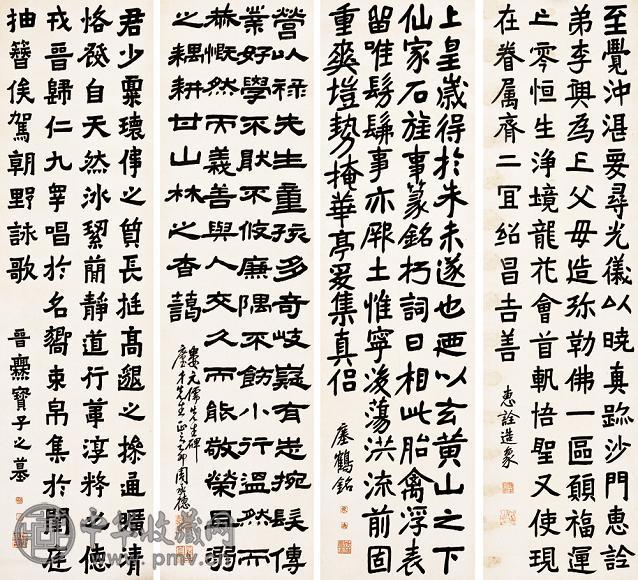 至覺沖湛要尋光儀以曉真跡沙門惠詮
弟李興為亡父母造弥勒佛一區願福運
亡零恒生淨境龍花會首軌悟聖又使現
在眷属齊二宜绍昌吉善
惠詮造象
上皇歲得於朱未遂也廼以玄黃山之下
仙家石旌事篆銘朽詞曰相此胎禽浮表
留唯髣髴事亦厥土惟寧浚蕩洪流前固
重爽塏勢掩華亭爰集真侣
瘞鶴銘
營以禄先生童孩多奇岐嶷有志捥髮傳
業好學不猒不攸廉隅不飭小行溫然而
恭慨然而義善與人交久而能敬榮且溺
之耦耕甘山林之杳藹
婁元儒先生碑
才先生正之 卯周承德
君少禀瓌偉之質長挺高邈之操通曠清
恪發自天然冰絜簡静道行葦淳粹之德
戎晋歸仁九皋唱於名嚮束帛集於閨庭
抽簪俟駕朝野詠歌
晋爨寶子之墓
中华收藏网
www.pmv.cn